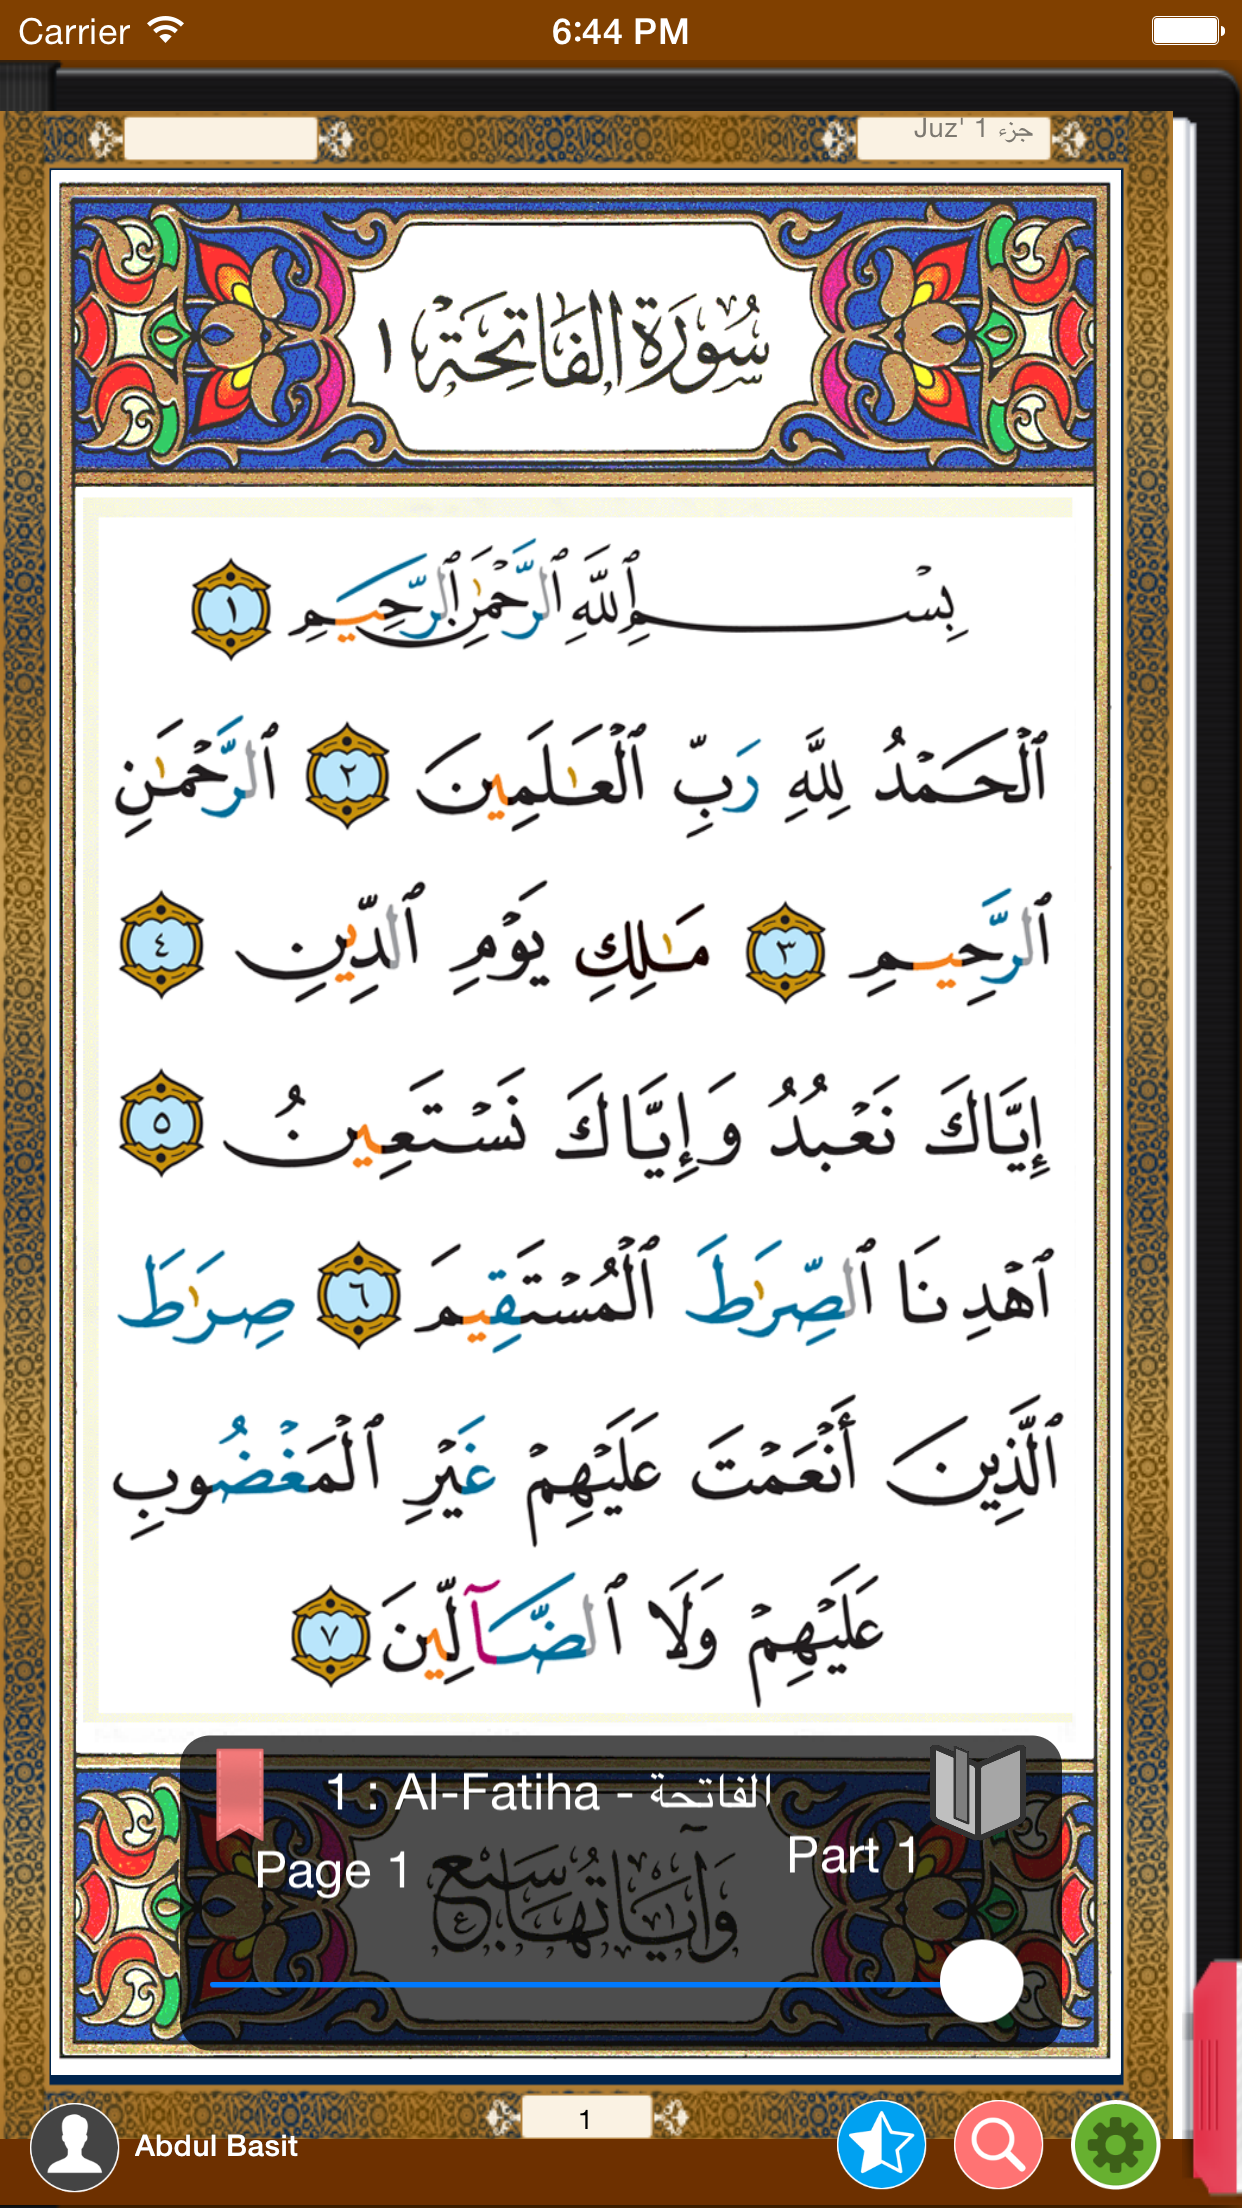 Carrier 6:44 PM
Juz' 1 جزء
سُورَةُ الفَاتِحَةِ ١
بِسۡمِ ٱللَّهِ ٱلرَّحۡمَٰنِ ٱلرَّحِيمِ ١
ٱلۡحَمۡدُ لِلَّهِ رَبِّ ٱلۡعَٰلَمِينَ ٢ ٱلرَّحۡمَٰنِ
ٱلرَّحِيمِ ٣ مَٰلِكِ يَوۡمِ ٱلدِّينِ ٤
إِيَّاكَ نَعۡبُدُ وَإِيَّاكَ نَسۡتَعِينُ ٥
ٱهۡدِنَا ٱلصِّرَٰطَ ٱلۡمُسۡتَقِيمَ ٦ صِرَٰطَ
ٱلَّذِينَ أَنۡعَمۡتَ عَلَيۡهِمۡ غَيۡرِ ٱلۡمَغۡضُوبِ
عَلَيۡهِمۡ وَلَا ٱلضَّآلِّينَ ٧
1 : Al-Fatiha - الفاتحة
Page 1 Part 1
وَآيَاتُهَا سَبْع
1
Abdul Basit